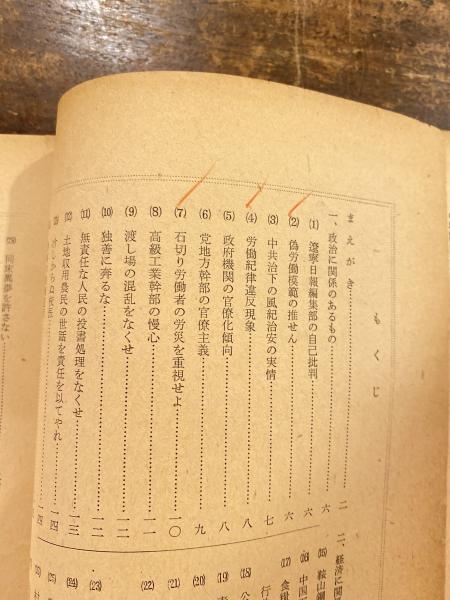 もくじ
まえがき……二
一、政治に関係のあるもの……六
(1) 遼寧日報編集部の自己批判……六
(2) 偽労働模範の推せん……六
(3) 中共治下の風紀治安の実情……七
(4) 労働紀律違反現象……八
(5) 政府機関の官僚化傾向……八
(6) 党地方幹部の官僚主義……九
(7) 石切り労働者の労災を重視せよ……一〇
(8) 高級工業幹部の慢心……一一
(9) 渡し場の混乱をなくせ……一二
(10) 独善に奔るな……一二
(11) 無責任な人民の投書処理をなくせ……一三
(12) 土地収用農民の世話を責任を以てやれ……一四
二、経済に関
(15) 鞍山鋼
(16) 中国
(17) 食糧
(18) 公
(19)
(20)
(21)
(22)
(23)
(24)
(25)
を許さない